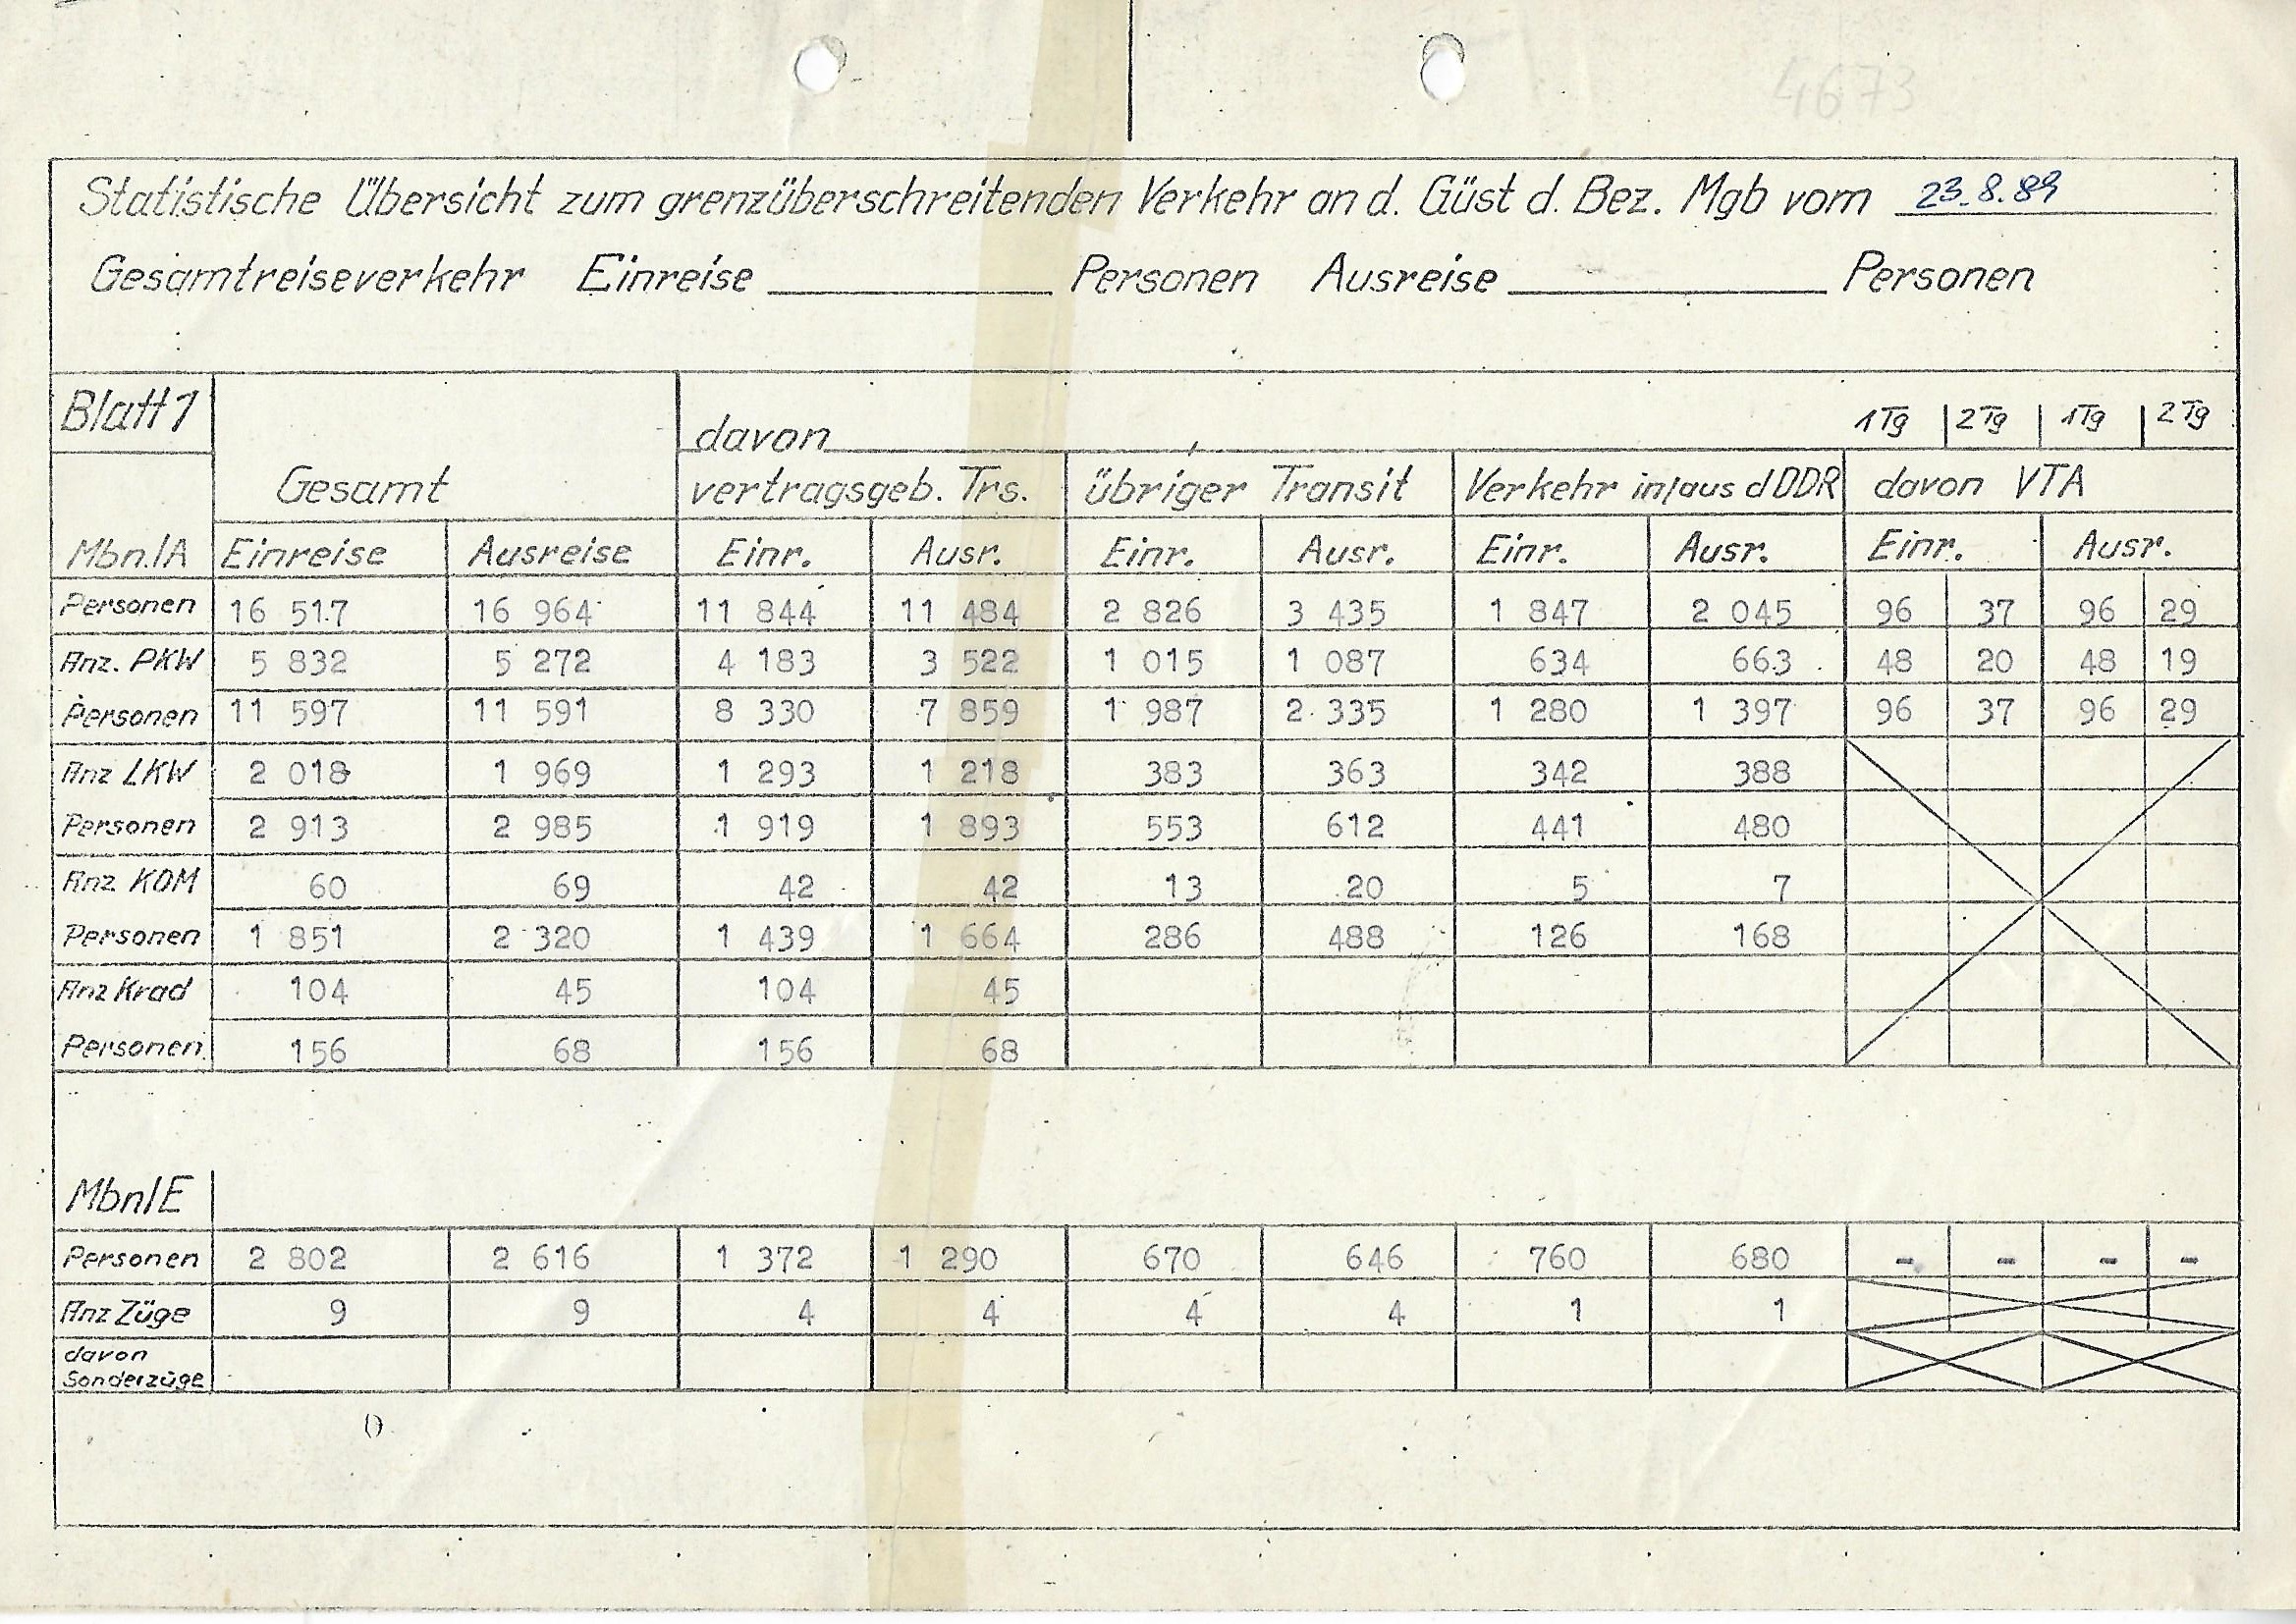 4673
Statistische Übersicht zum grenzüberschreitenden Verkehr an d. Güst d. Bez. Mgb vom 23.8.89
Gesamtreiseverkehr Einreise Personen Ausreise Personen
Blatt 1 davon 1Tg 2Tg 1Tg 2Tg
Gesamt vertragsgeb. Trs. übriger Transit Verkehr in/aus d DDR davon VTA
Mbn./A Einreise Ausreise Einr. Ausr. Einr. Ausr. Einr. Ausr. Einr. Ausr.
Personen 16 517 16 964 11 844 11 484 2 826 3 435 1 847 2 045 96 37 96 29
Anz. PKW 5 832 5 272 4 183 3 522 1 015 1 087 634 663 48 20 48 19
Personen 11 597 11 591 8 330 7 859 1 987 2 335 1 280 1 397 96 37 96 29
Anz LKW 2 018 1 969 1 293 1 218 383 363 342 388
Personen 2 913 2 985 1 919 1 893 553 612 441 480
Anz KOM 60 69 42 42 13 20 5 7
Personen 1 851 2 320 1 439 1 664 286 488 126 168
Anz Krad 104 45 104 45
Personen 156 68 156 68
Mbn/E
Personen 2 802 2 616 1 372 1 290 670 646 760 680 - - - -
Anz Züge 9 9 4 4 4 4 1 1
davon
Sonderzüge